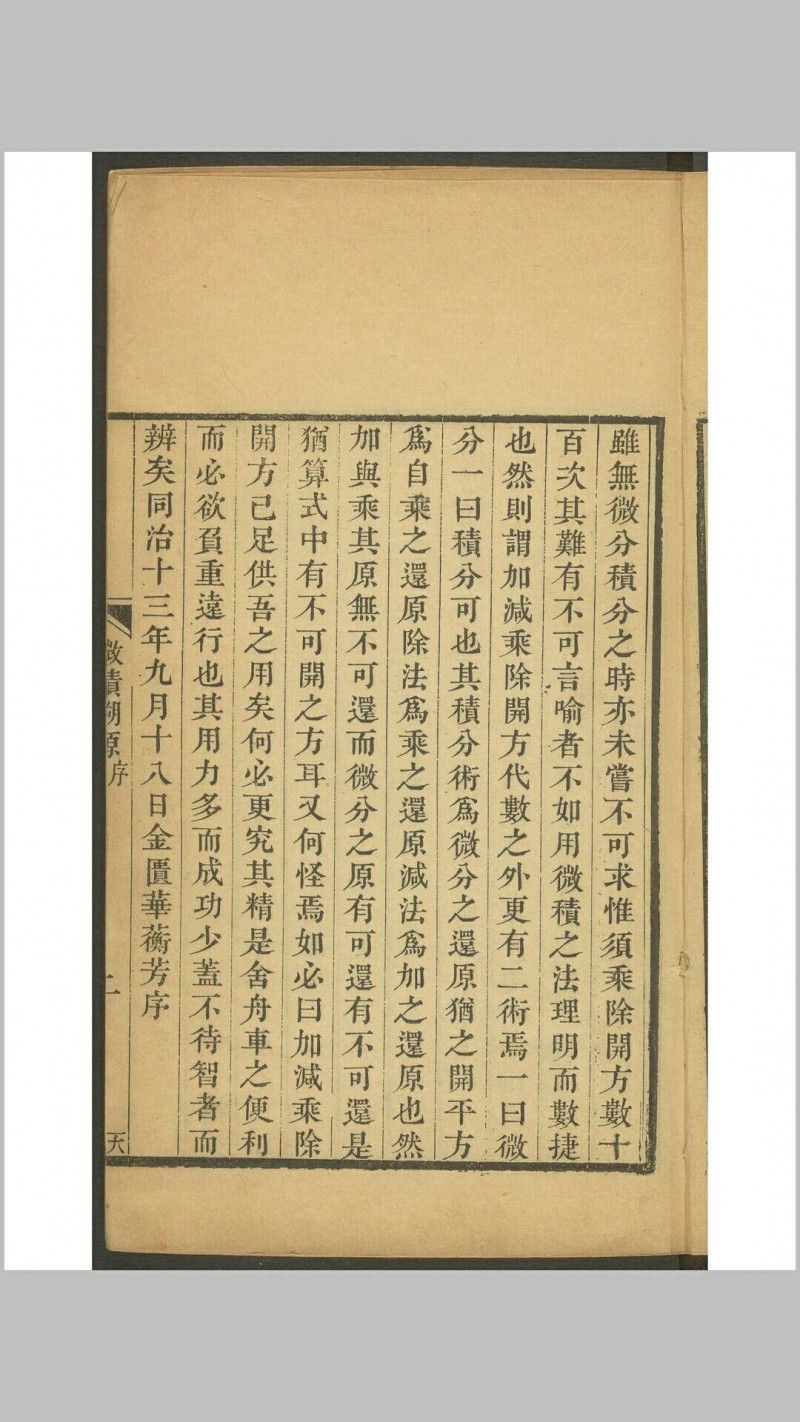 雖無微分積分之時亦未嘗不可求惟須乘除開方數十
百次其難有不可言喻者不如用微積之法理明而數捷
也然則謂加減乘除開方代數之外更有二術焉一曰微
分一曰積分可也其積分術爲微分之還原猶之開平方
爲自乘之還原除法爲乘之還原減法爲加之還原也然
加與乘其原無不可還而微分之原有可還有不可還是
猶算式中有不可開之方耳又何怪焉如必曰加減乘除
開方已足供吾之用矣何必更究其精是舍舟車之便利
而必欲負重遠行也其用力多而成功少蓋不待智者而
辨矣同治十三年九月十八日金匱華蘅芳序
微積溯原 序
二
天